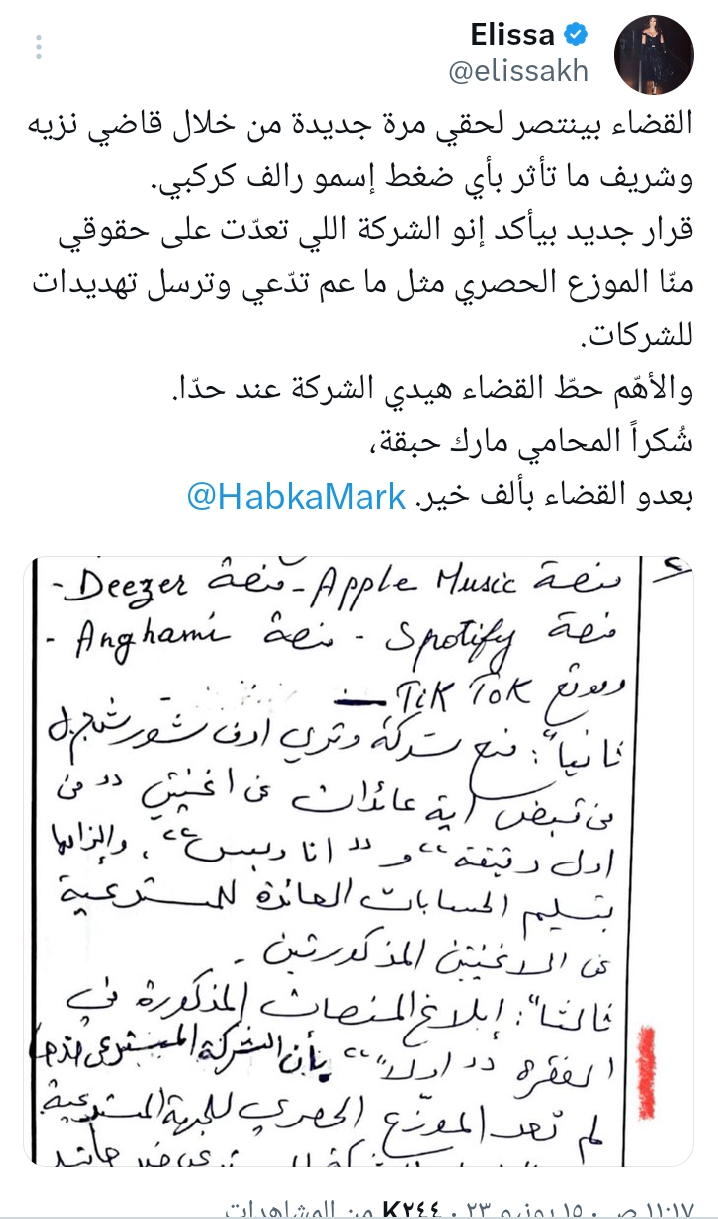 Elissa
@elissakh
القضاء بينتصر لحقي مرة جديدة من خلال قاضي نزيه
وشريف ما تأثر بأي ضغط إسمو رالف كركبي.
قرار جديد بيأكد إنو الشركة اللي تعدّت على حقوقي
منّا الموزع الحصري مثل ما عم تدّعي وترسل تهديدات
للشركات.
والأهّم حطّ القضاء هيدي الشركة عند حدّا.
شُكراً المحامي مارك حبقة،
بعدو القضاء بألف خير. @HabkaMark
منصة Apple Music - منصة Deezer -
منصة Spotify - منصة Anghami -
وموقع TiK TOK
ثانياً: منع شركة وتري اوف شور ش.م.ل
من قبض اية عائدات عن اغنيتي "من
اول دقيقة" و "انا وبس"، والزامها
بتسليم الحسابات العائدة للمستدعية
عن الاغنيتين المذكورتين.
ثالثاً: إبلاغ المنصات المذكورة في
الفقرة "اولاً" بأن الشركة المستدعى ضدها
لم تعد الموزّع الحصري للجهة المستدعية
١١:١٧ ص · ١٥ يونيو ٢٣ · ٢٤٤K من المشاهدات